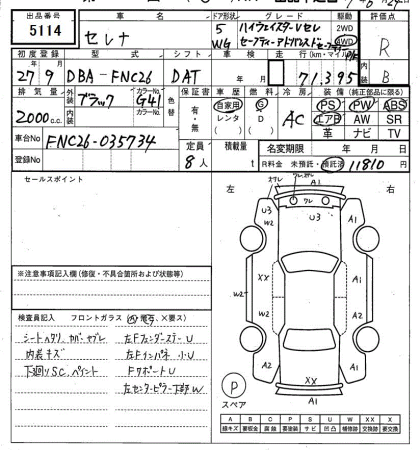 出品番号 車名 ドア形状 グレード 駆動 評価点
5114 セレナ 5 WG ハイウェイスターVセレ 2WD 4WD R
セーフティーアドバンスドセーフティ
初度登録 型式 シフト 車検 走行(km・マイル) 内装
27年 9月 DBA-FNC26 DAT 年 月 71,395 B
排気量 外装色 カラーNo. 色替 保証書 車歴 燃料 冷房 装備(純正部品に限る)
2000c.c. ブラック G41 有・無 自家用 レンタ G D AC PS PW ABS
エアB AW SR
革 ナビ TV
車台No FNC26-035734 定員 積載量 名変期限 年 月 日
登録No 8人 t R料金 未預託・預託済 11810円
セールスポイント
左 右
A1
ワレ
U3 U3
W2 W2
XX XX
W2 W2
A1
A2 A2
XX
A1
P
スペア
※注意事項記入欄(修復・不具合箇所および状態等)
検査員記入 フロントガラス (A、飛石、X要ス)
シートヘタリ、カバーヤブレ 左FフェンダーステーU
内装キズ 左Fインパネ小U
下廻りS.C、ペイント FサポートU
左センターピラー下部W
A B C P S U W X XX X
線キズ 要板金 腐蝕 要塗装 サビ 凹凸 補修跡 交換跡 要交換